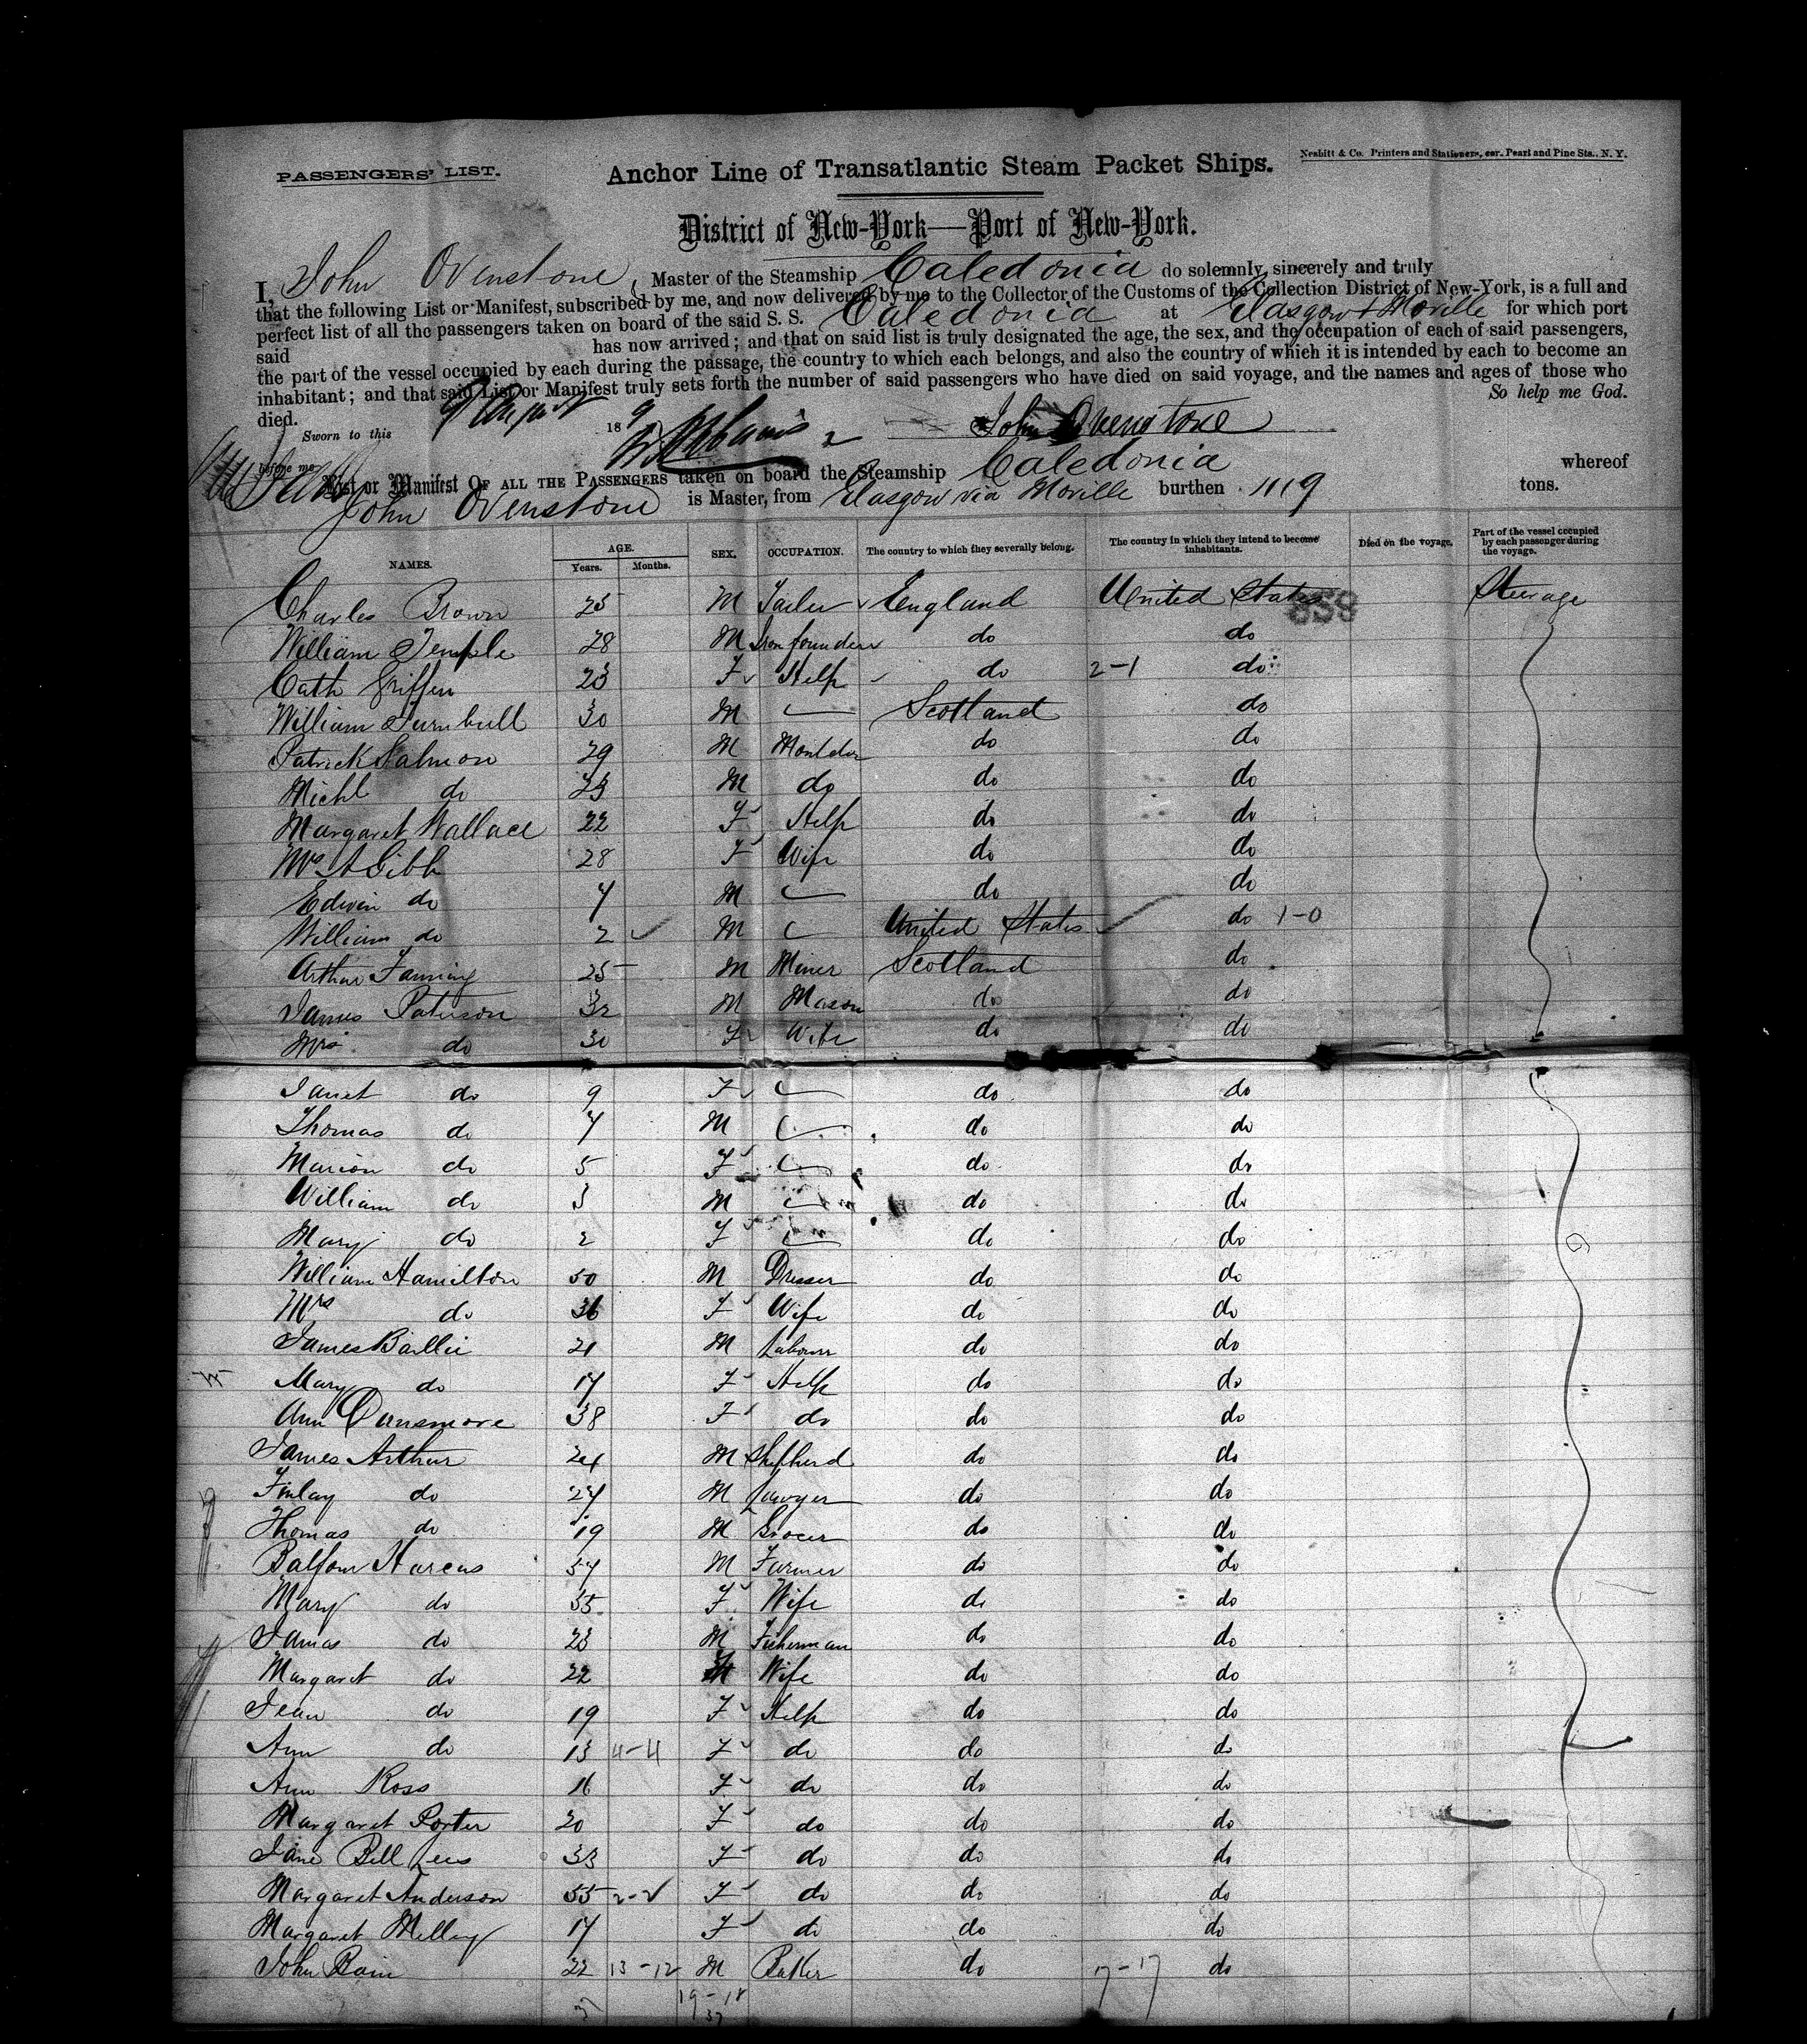 PASSENGERS' LIST.
Anchor Line of Transatlantic Steam Packet Ships.
Nesbitt & Co. Printers and Stationers, cor. Pearl and Pine Sts., N. Y.
District of New-York—Port of New-York.
I, John Ovenstone, Master of the Steamship Caledonia do solemnly, sincerely and truly
that the following List or Manifest, subscribed by me, and now delivered by me to the Collector of the Customs of the Collection District of New-York, is a full and
perfect list of all the passengers taken on board of the said S. S. Caledonia at Glasgow & Moville for which port
said has now arrived; and that on said list is truly designated the age, the sex, and the occupation of each of said passengers,
the part of the vessel occupied by each during the passage, the country to which each belongs, and also the country of which it is intended by each to become an
inhabitant; and that said List or Manifest truly sets forth the number of said passengers who have died on said voyage, and the names and ages of those who
died. So help me God.
Sworn to this 9 August 18 9 John Ovenstone
before me
List or Manifest OF ALL THE PASSENGERS taken on board the Steamship Caledonia whereof
John Ovenstone is Master, from Glasgow via Moville burthen 1119 tons.
NAMES. AGE. Years. Months. SEX. OCCUPATION. The country to which they severally belong. The country in which they intend to become inhabitants. Died on the voyage. Part of the vessel occupied by each passenger during the voyage.
Charles Brown 25 M Tailer England United States Steerage
858
William Temple 28 M Iron founder do do
Cath Griffen 23 F Help do 2-1 do
William Turnbull 30 M Scotland do
Patrick Salmon 29 M Moulder do do
Michl do 23 M do do do
Margaret Wallace 22 F Help do do
Mrs A Gibb 28 F Wife do do
Edwin do 4 M do do
William do 2 M United States do 1-0
Arthur Fanning 25 M Miner Scotland do
James Paterson 32 M Mason do do
Mrs do 30 F Wife do do
Janet do 9 F do do
Thomas do 7 M do do
Marion do 5 F do do
William do 3 M do do
Mary do 2 F do do
William Hamilton 50 M Dresser do do
Mrs do 36 F Wife do do
James Baillie 21 M Labourer do do
Mary do 17 F Help do do
Ann Dunsmore 38 F do do do
James Arthur 24 M Shepherd do do
Finlay do 27 M Sawyer do do
Thomas do 19 M Grocer do do
Balfour Harcus 57 M Farmer do do
Mary do 55 F Wife do do
James do 23 M Fisherman do do
Margaret do 22 Wife do do
Jean do 19 F Help do do
Ann do 13 4-4 F do do do
Ann Ross 16 F do do do
Margaret Porter 20 F do do do
Jane Bell Lees 33 F do do do
Margaret Anderson 55 2-2 F do do do
Margaret Milley 17 F do do do
John Bain 22 13-12 M Baker do 17-17 do
19-18
37